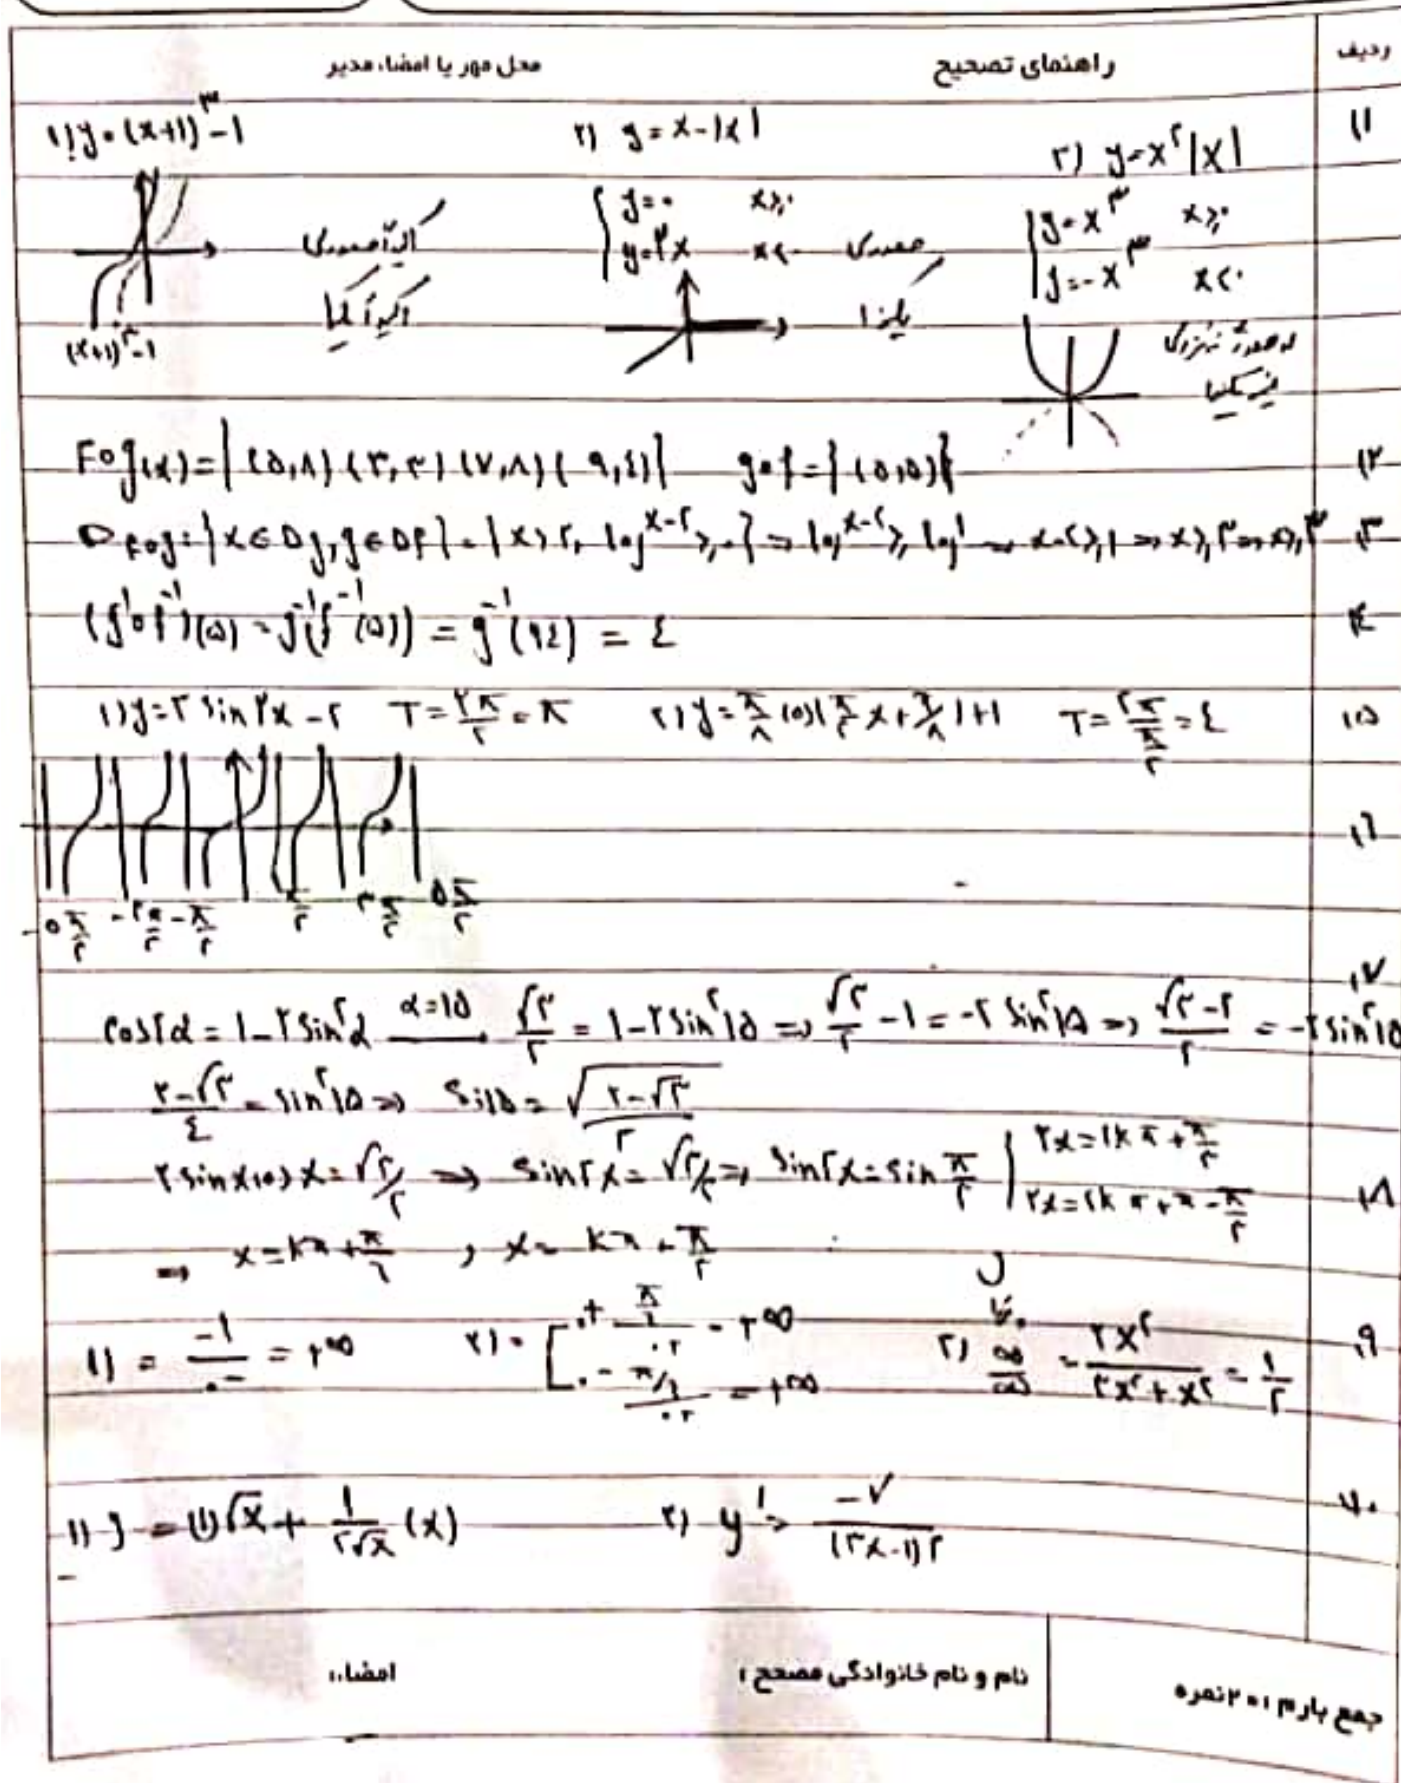 ردیف راهنمای تصحیح محل مهر یا امضاء مدیر
۱۱ ۱) y = (x+۱)^۳ - ۱ ۲) y = x - |x| ۳) y = x^۲|x|
{ y = ۰ x ≥ ۰
{ y = ۲x x < ۰ صعودی
{ y = x^۳ x ≥ ۰
{ y = -x^۳ x < ۰
اکیداً صعودی
اکیداً یکنوا
(x+۱)^۳ - ۱
۱۲ Fog(x) = {(۵,۸) (۳,۴) (۷,۸) (۹,۴)} gof = {(۵,۵)}
۱۳ D fog = {x ∈ Dg, g ∈ Df} = {x > ۲, log^{x-۲} ≥ ۰} ⇒ log^{x-۲} ≥ log^۱ ⇒ x-۲ ≥ ۱ ⇒ x ≥ ۳
۱۴ (g^{-۱}of^{-۱})(۵) = g^{-۱}(f^{-۱}(۵)) = g^{-۱}(۹۴) = ۴
۱۵ ۱) y = ۲ sin ۲x - ۲ T = ۲π/۲ = π ۲) y = π/۸ cos(π/۲ x + π/۸) + ۱ T = ۲π/(π/۲) = ۴
۱۶
-۵π/۲ -۳π/۲ -π/۲ π/۲ ۳π/۲ ۵π/۲
۱۷
cos۲α = ۱-۲sin^۲α α=۱۵ √۳/۲ = ۱-۲sin^۲۱۵ ⇒ √۳/۲ - ۱ = -۲ sin^۲۱۵ ⇒ (√۳-۲)/۲ = -۲sin^۲۱۵
(۲-√۳)/۴ = sin^۲۱۵ ⇒ Sin۱۵ = √(۲-√۳)/۲
۱۸ ۲sinxcosx = √۳/۲ ⇒ sin۲x = √۳/۲ ⇒ sin۲x = sin π/۳ { ۲x = ۲kπ + π/۳
۲x = ۲kπ + π - π/۳
⇒ x = kπ + π/۶ , x = kπ + π/۳
۱۹ ۱) = -۱/۰^- = +∞ ۲) = [ ۰+ (π/۶)/۰+ = +∞
۰- (π/۶)/۰+ = +∞
۳) ∞/∞ = ۲x^۲/(۳x^۲+x^۲) = ۱/۲
۲۰ ۱) y' = (۱)√x + ۱/(۲√x) (x) ۲) y' = -۷/(۳x-۱)^۲
جمع بارم : ۲۰ نمره نام و نام خانوادگی مصحح : امضاء: